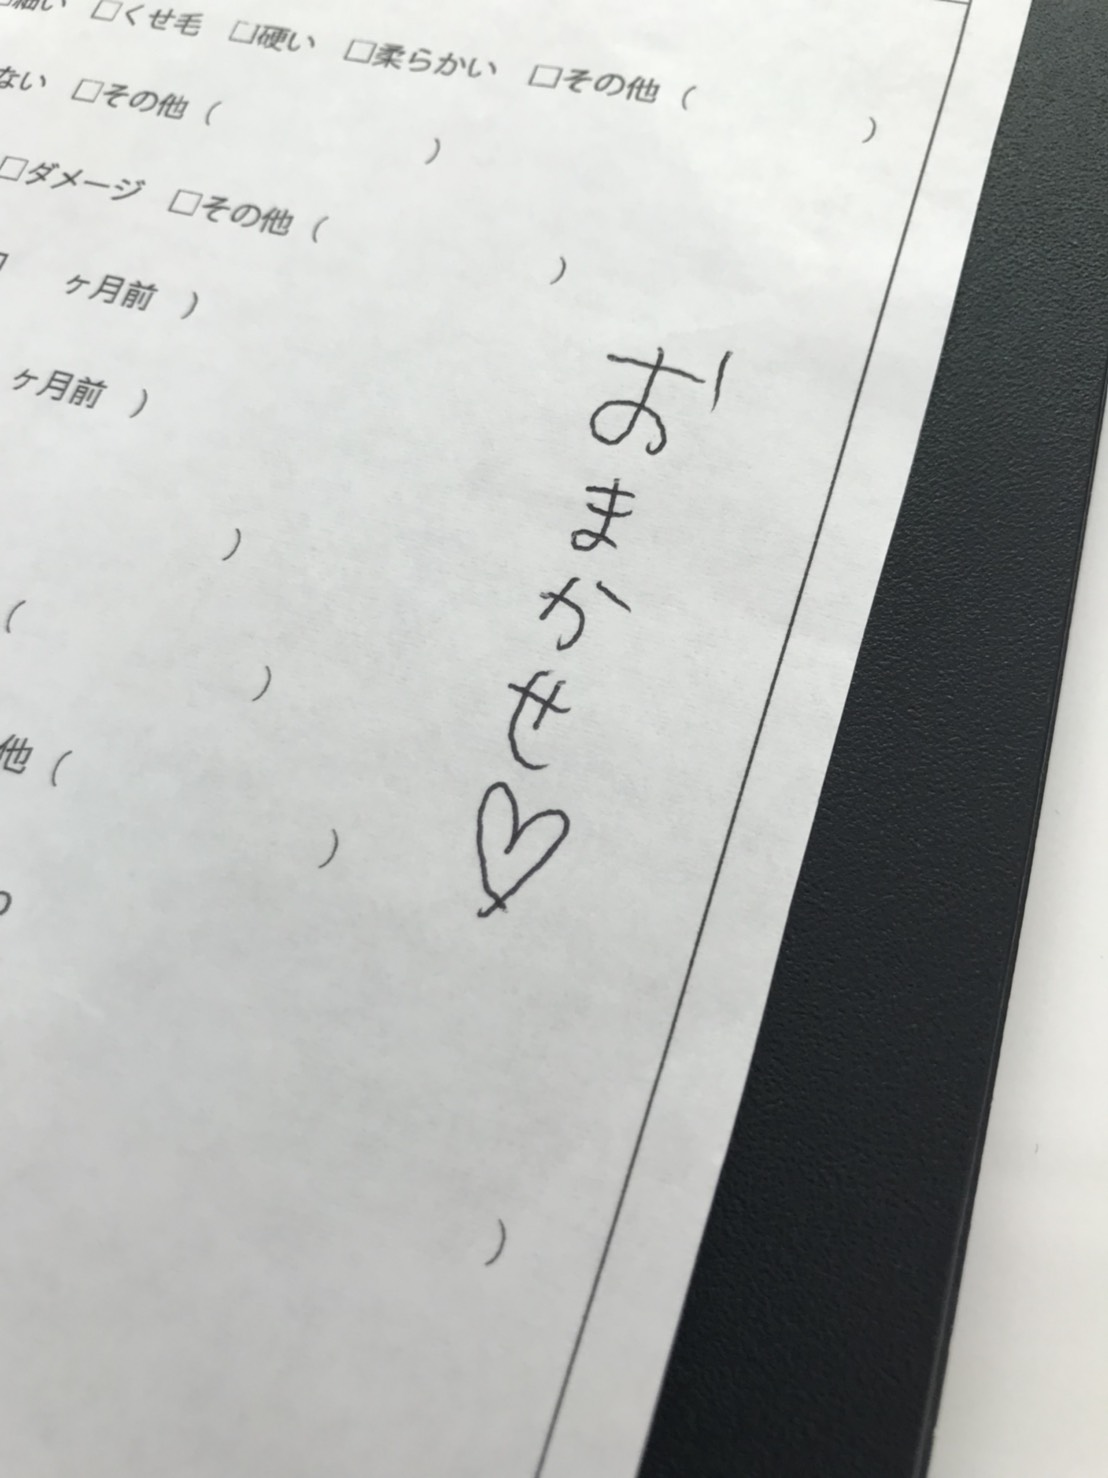 □くせ毛 □硬い □柔らかい □その他（ ）
ない □その他（ ）
□ダメージ □その他（ ）
ヶ月前 ）
ヶ月前 ）
）
（ ）
他（ ）
）
おまかせ♡